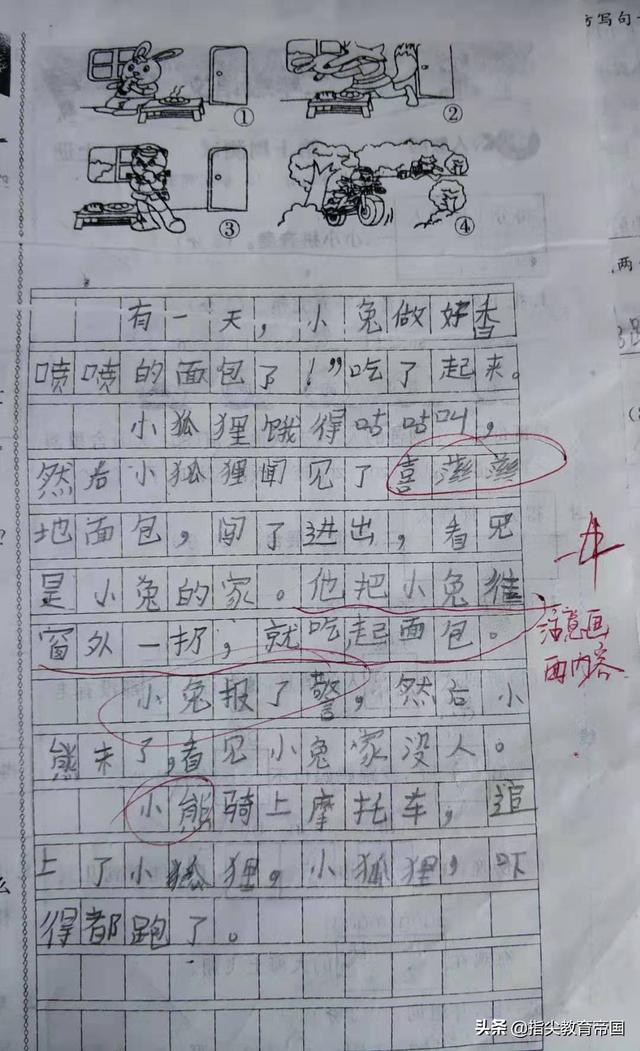 方写句
①
②
③
④
有一天，小兔做好香
喷喷的面包了！”吃了起来。
小狐狸饿得咕咕叫，
然后小狐狸闻见了喜
地面包，闻了进出，看见
是小兔的家。他把小兔往
窗外一扔，就吃起面包。
小兔报了警，然后小
熊来了，看见小兔家没人。
小熊骑上摩托车，追
上了小狐狸，小狐狸，吓
得都跑了。
注意画
面内容
头条 @指尖教育帝国